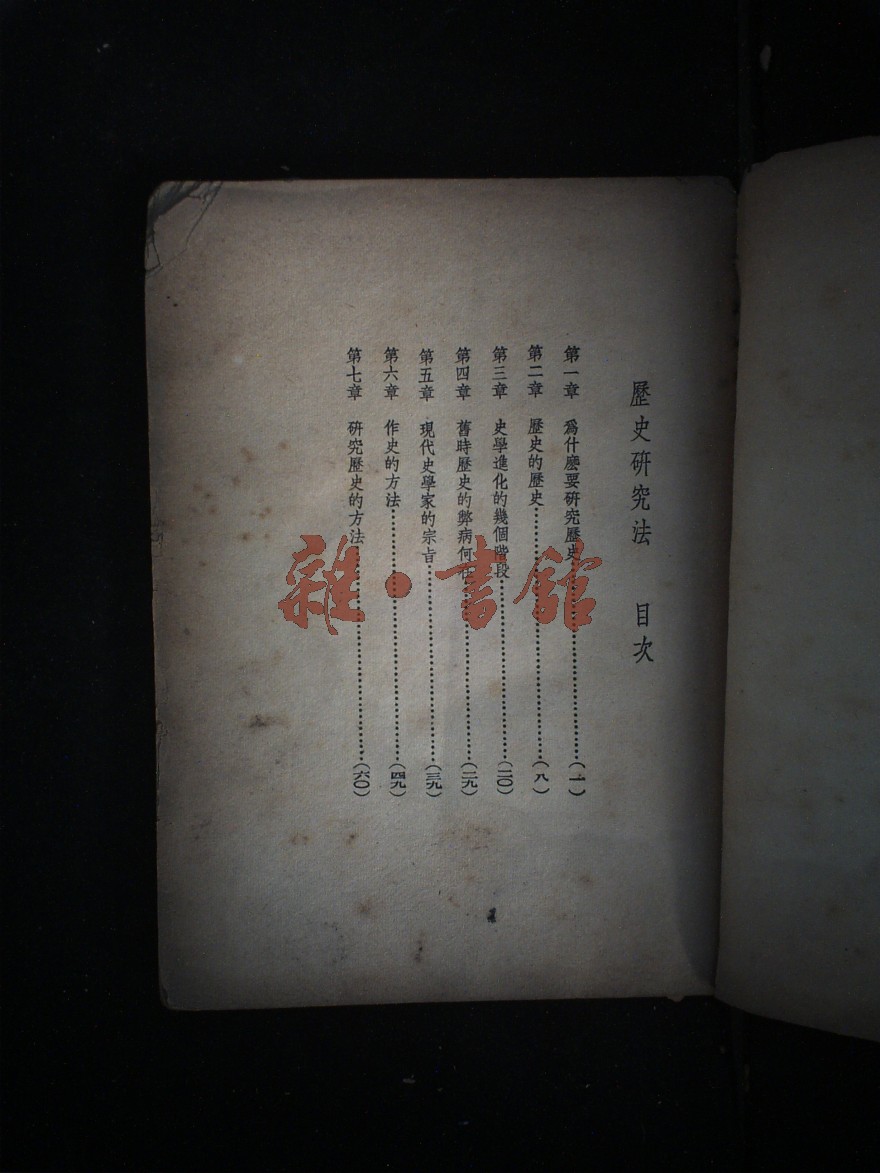 歷史硏究法　目次
第一章　爲什麽要硏究歷史…………(一)
第二章　歷史的歷史…………(八)
第三章　史學進化的幾個階段…………(二〇)
第四章　舊時歷史的弊病何在…………(二九)
第五章　現代史學家的宗旨…………(三九)
第六章　作史的方法…………(四九)
第七章　硏究歷史的方法…………(六〇)
雜·書館